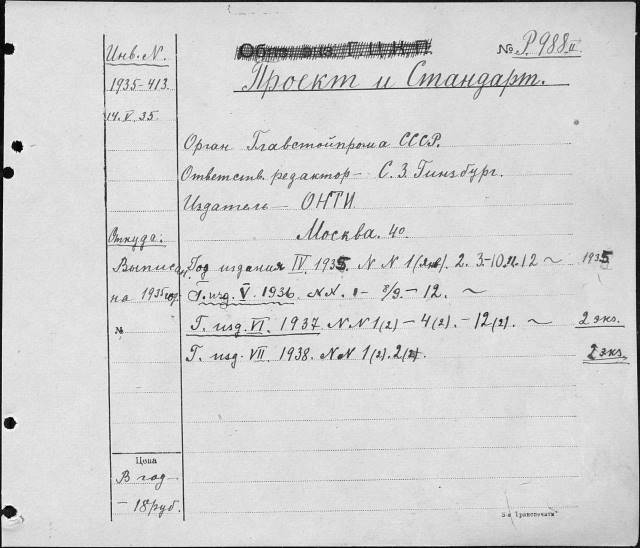 Инв. N.
1935-413
14.V.35.
№ Р. 988 II
Проект и Стандарт.
Орган Главстойпрома СССР.
Ответств. редактор — С. З. Гинзбург.
Издатель — ОНТИ
Москва. 40.
Откуда:
Выписан
на 1935 год.
№
Год издания IV 1935. N N 1 (Янв). 2. 3.-10. 11. 12 ~ 1935
Г. изд. V. 1936 N.N. 1 - 8/9. - 12. ~
Г. изд. VI. 1937 N N 1(2) - 4(2). - 12(2). ~ 2 экз.
Г. изд. VII 1938. N N 1(2). 2(2). 2 экз.
Цена
В год
- 18 руб.